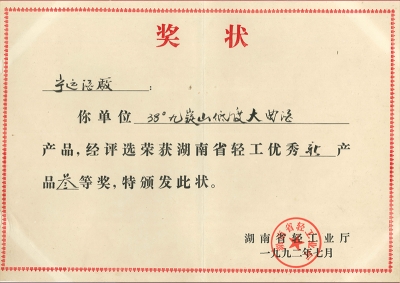 奖状
宁远酒厂：
你单位 38°九嶷山低度大曲酒
产品，经评选荣获湖南省轻工优秀新产
品叁等奖，特颁发此状。
湖南省轻工业厅
一九九二年七月